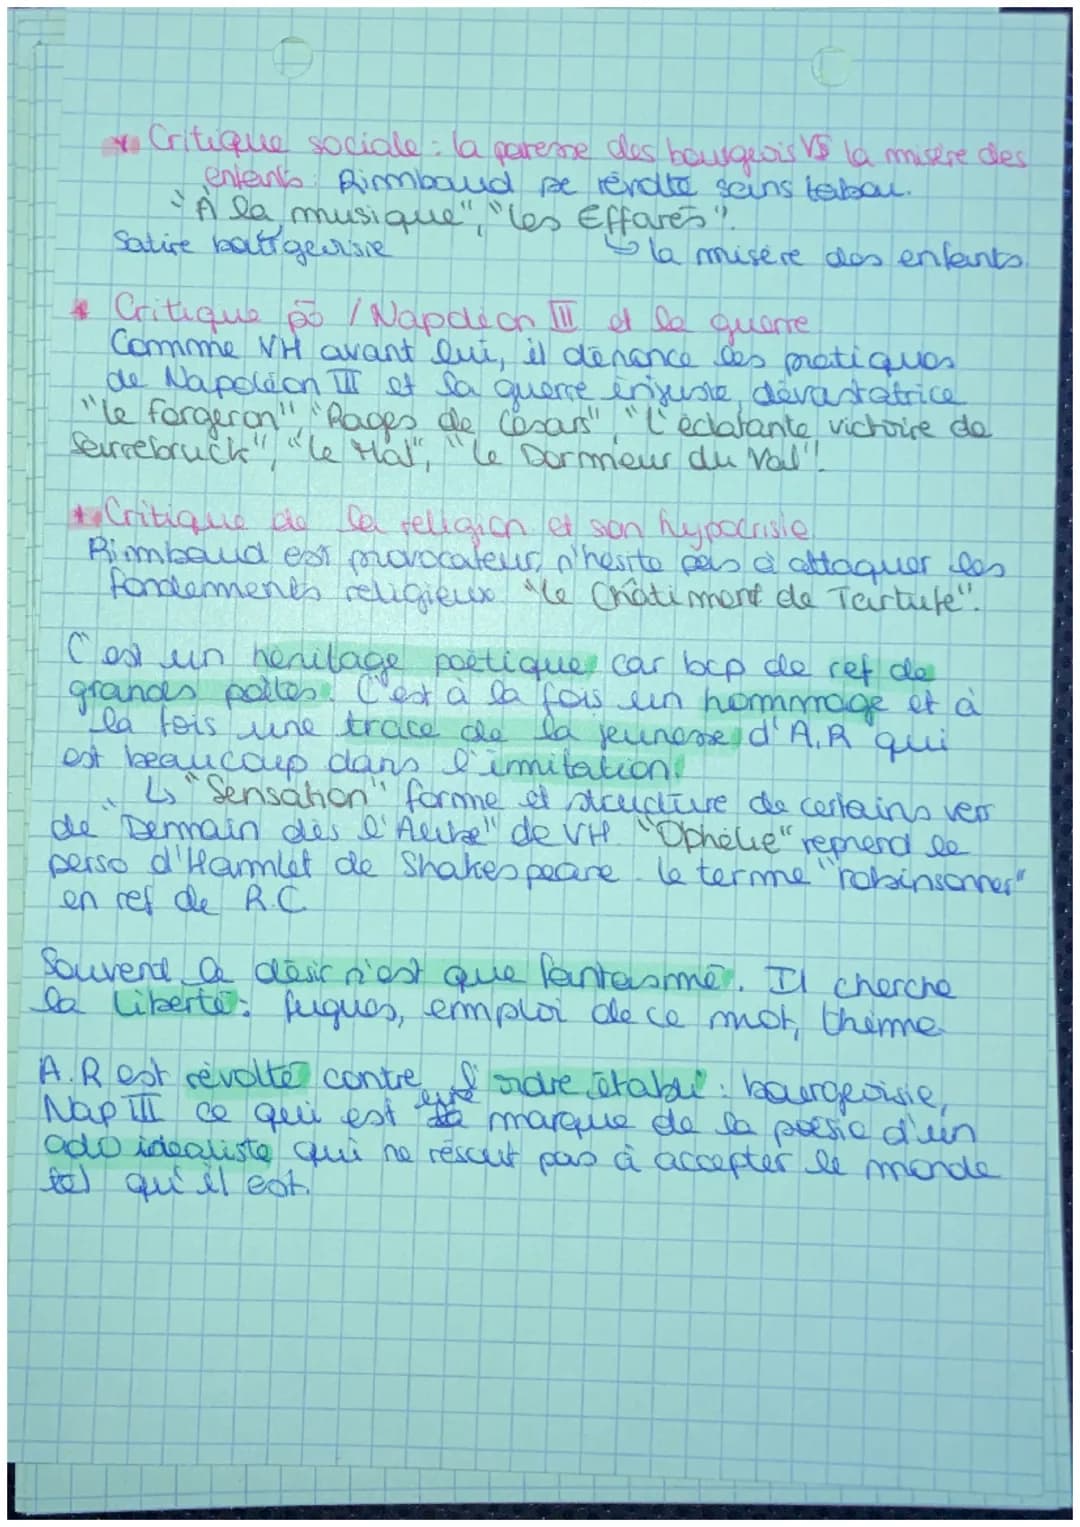 * Critique sociale : la paresse des bourgeois VS la misère des
enfants : Rimmbaud se révolte sans tabou.
"À la musique", "les Effarés".
Satire bourgeoisie ↳ la misère des enfants
* Critique pô / Napoléon III et la guerre
Comme VH avant lui, il dénonce les pratiques
de Napoléon III et sa guerre injuste, dévastatrice
"le forgeron", "Rages de Césars", "L'éclatante victoire de
Sarrebruck", "le Mal", "Le Dormeur du Val".
* Critique de la religion et son hypocrisie
Rimmbaud est provocateur, n'hésite pas à attaquer les
fondements religieux "le Châtiment de Tartufe".
C'est un héritage poétique car bcp de ref de
grands poètes. C'est à la fois un hommage et à
la fois une trace de la jeunesse d'A.R qui
est beaucoup dans l'imitation.
↳ "Sensation" forme et structure de certains vers
de "Demain dès l'Aube" de VH. "Ophélie" reprend le
perso d'Hamlet de Shakespeare. le terme "robinsonner"
en ref de R.C
Souvent le désir n'est que fantasmé. Il cherche
la liberté : fugues, emploi de ce mot, thème
A.R est révolté contre l'ordre établi : bourgeoisie,
Nap III ce qui est une marque de la poésie d'un
ado idéaliste qui ne résout pas à accepter le monde
tel qu'il est.